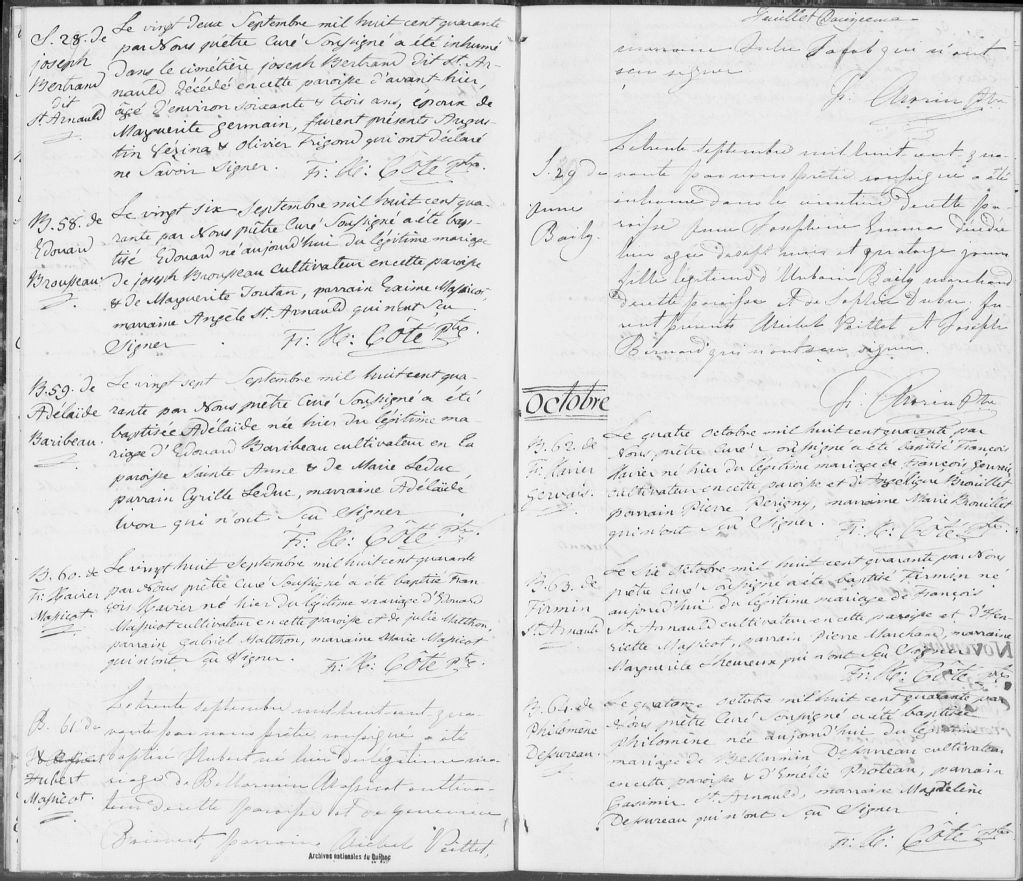 S. 28. de
joseph
Bertrand
dit
St Arnauld
Le vingt deux Septembre mil huit cent quarante
par Nous prêtre Curé Soussigné a été inhumé
dans le cimétière joseph Bertrand dit St. Ar-
nauld décédé en cette paroisse d'avant hier,
âgé d'environ soixante & trois ans, époux de
Marguerite germain, furent présents Augus-
tin Gezina & Olivier Frigond qui ont déclaré
ne Savoir Signer. Fr: X: Côté Ptre.
B. 58. de
Edouard
Brousseau
Le vingt six Septembre mil huit cent qua-
rante par Nous prêtre Curé Soussigné a été bap-
tisé Edouard né aujourd'hui du légitime mariage
de joseph Brousseau cultivateur en cette paroisse
& de Marguerite Toutan, parrain Exime Massicot,
marraine Angele St. Arnauld qui n'ont Seu
Signer Fr: X: Côté Ptre.
B. 59. de
Adélaïde
Baribeau.
Le vingt sept Septembre mil huit cent qua-
rante par Nous prêtre Curé Soussigné a été
baptisée Adélaïde née hier du légitime ma-
riage d'Edouard Baribeau cultivateur en la
paroisse Sainte Anne & de Marie Leduc
parrain Cyrille Leduc, marraine Adélaïde
Lvon qui n'ont Su Signer
Fr: X: Côté Ptre.
B. 60. de
Fr: Xavier
Massicot.
Le vingt huit Septembre mil huit cent quarante
par Nous prêtre Curé Soussigné a été baptisé Fran
çois Xavier né hier du légitime mariage d'Edouard
Massicot cultivateur en cette paroisse & de julie Matthon,
parrain gabriel Matthon, marraine Marie Massicot
qui n'ont Su Signer. Fr: X: Côté Ptre.
B. 61 de
Hubert
Massicot.
Le trente septembre mil huit cent qua-
rante par nous prêtre soussigné a été
baptisé Hubert né hier du légitime ma-
riage de Bellarmin Massicot cultiva-
teur de cette paroisse et de
parrain Michel Veillet,
Archives nationales du Québec
Feuillet Douzieme
marraine Julie qui n'ont
seu signer
Fr: Morin Ptre
S. 29 de
Baily
Le trente septembre mil huit cent qua-
rante par nous prêtre soussigné a été
inhumé dans le cimetiere de cette pa-
roisse Josephine Emma décédée
hier agée de sept mois et quatorze jours
fille légitime d'Urbain Baily marchand
de cette paroisse et de Sophie Dubuc. fu-
rent présents Michel Veillet et Joseph
Bernard qui n'ont seu signer.
Fr: Morin Ptre
Octobre
B. 62. de
Fr: Xavier
Gervais.
Le quatre octobre mil huit cent quarante par
Nous prêtre Curé Soussigné a été baptisé François
Xavier né hier du légitime mariage de François Gervais
cultivateur en cette paroisse et d'Angelique Brouillet
parrain Pierre Perigny, marraine Marie Brouillet
qui n'ont Su Signer. Fr: X: Côté Ptre.
B. 63. de
Firmin
St. Arnauld
Le Six octobre mil huit cent quarante par Nous
prêtre Curé Soussigné a été baptisé Firmin né
aujourd'hui du légitime mariage de François
St. Arnauld cultivateur en cette paroisse et d'Hen-
riette Massicot, parrain Pierre Marchand, marraine
Marguerite Lheureux qui n'ont Seu Signer
Fr: X: Côté Ptre
B. 64. de
Philomène
Desureau.
Le quatorze octobre mil huit cent quarante par
Nous prêtre Curé Soussigné a été baptisée
Philomène née aujourd'hui du légitime
mariage de Bellarmin Desureau cultivateur
en cette paroisse & d'Emélie Proteau, parrain
Casimir St. Arnauld, marraine Magdelène
Desureau qui n'ont Su Signer
Fr: X: Côté Ptre